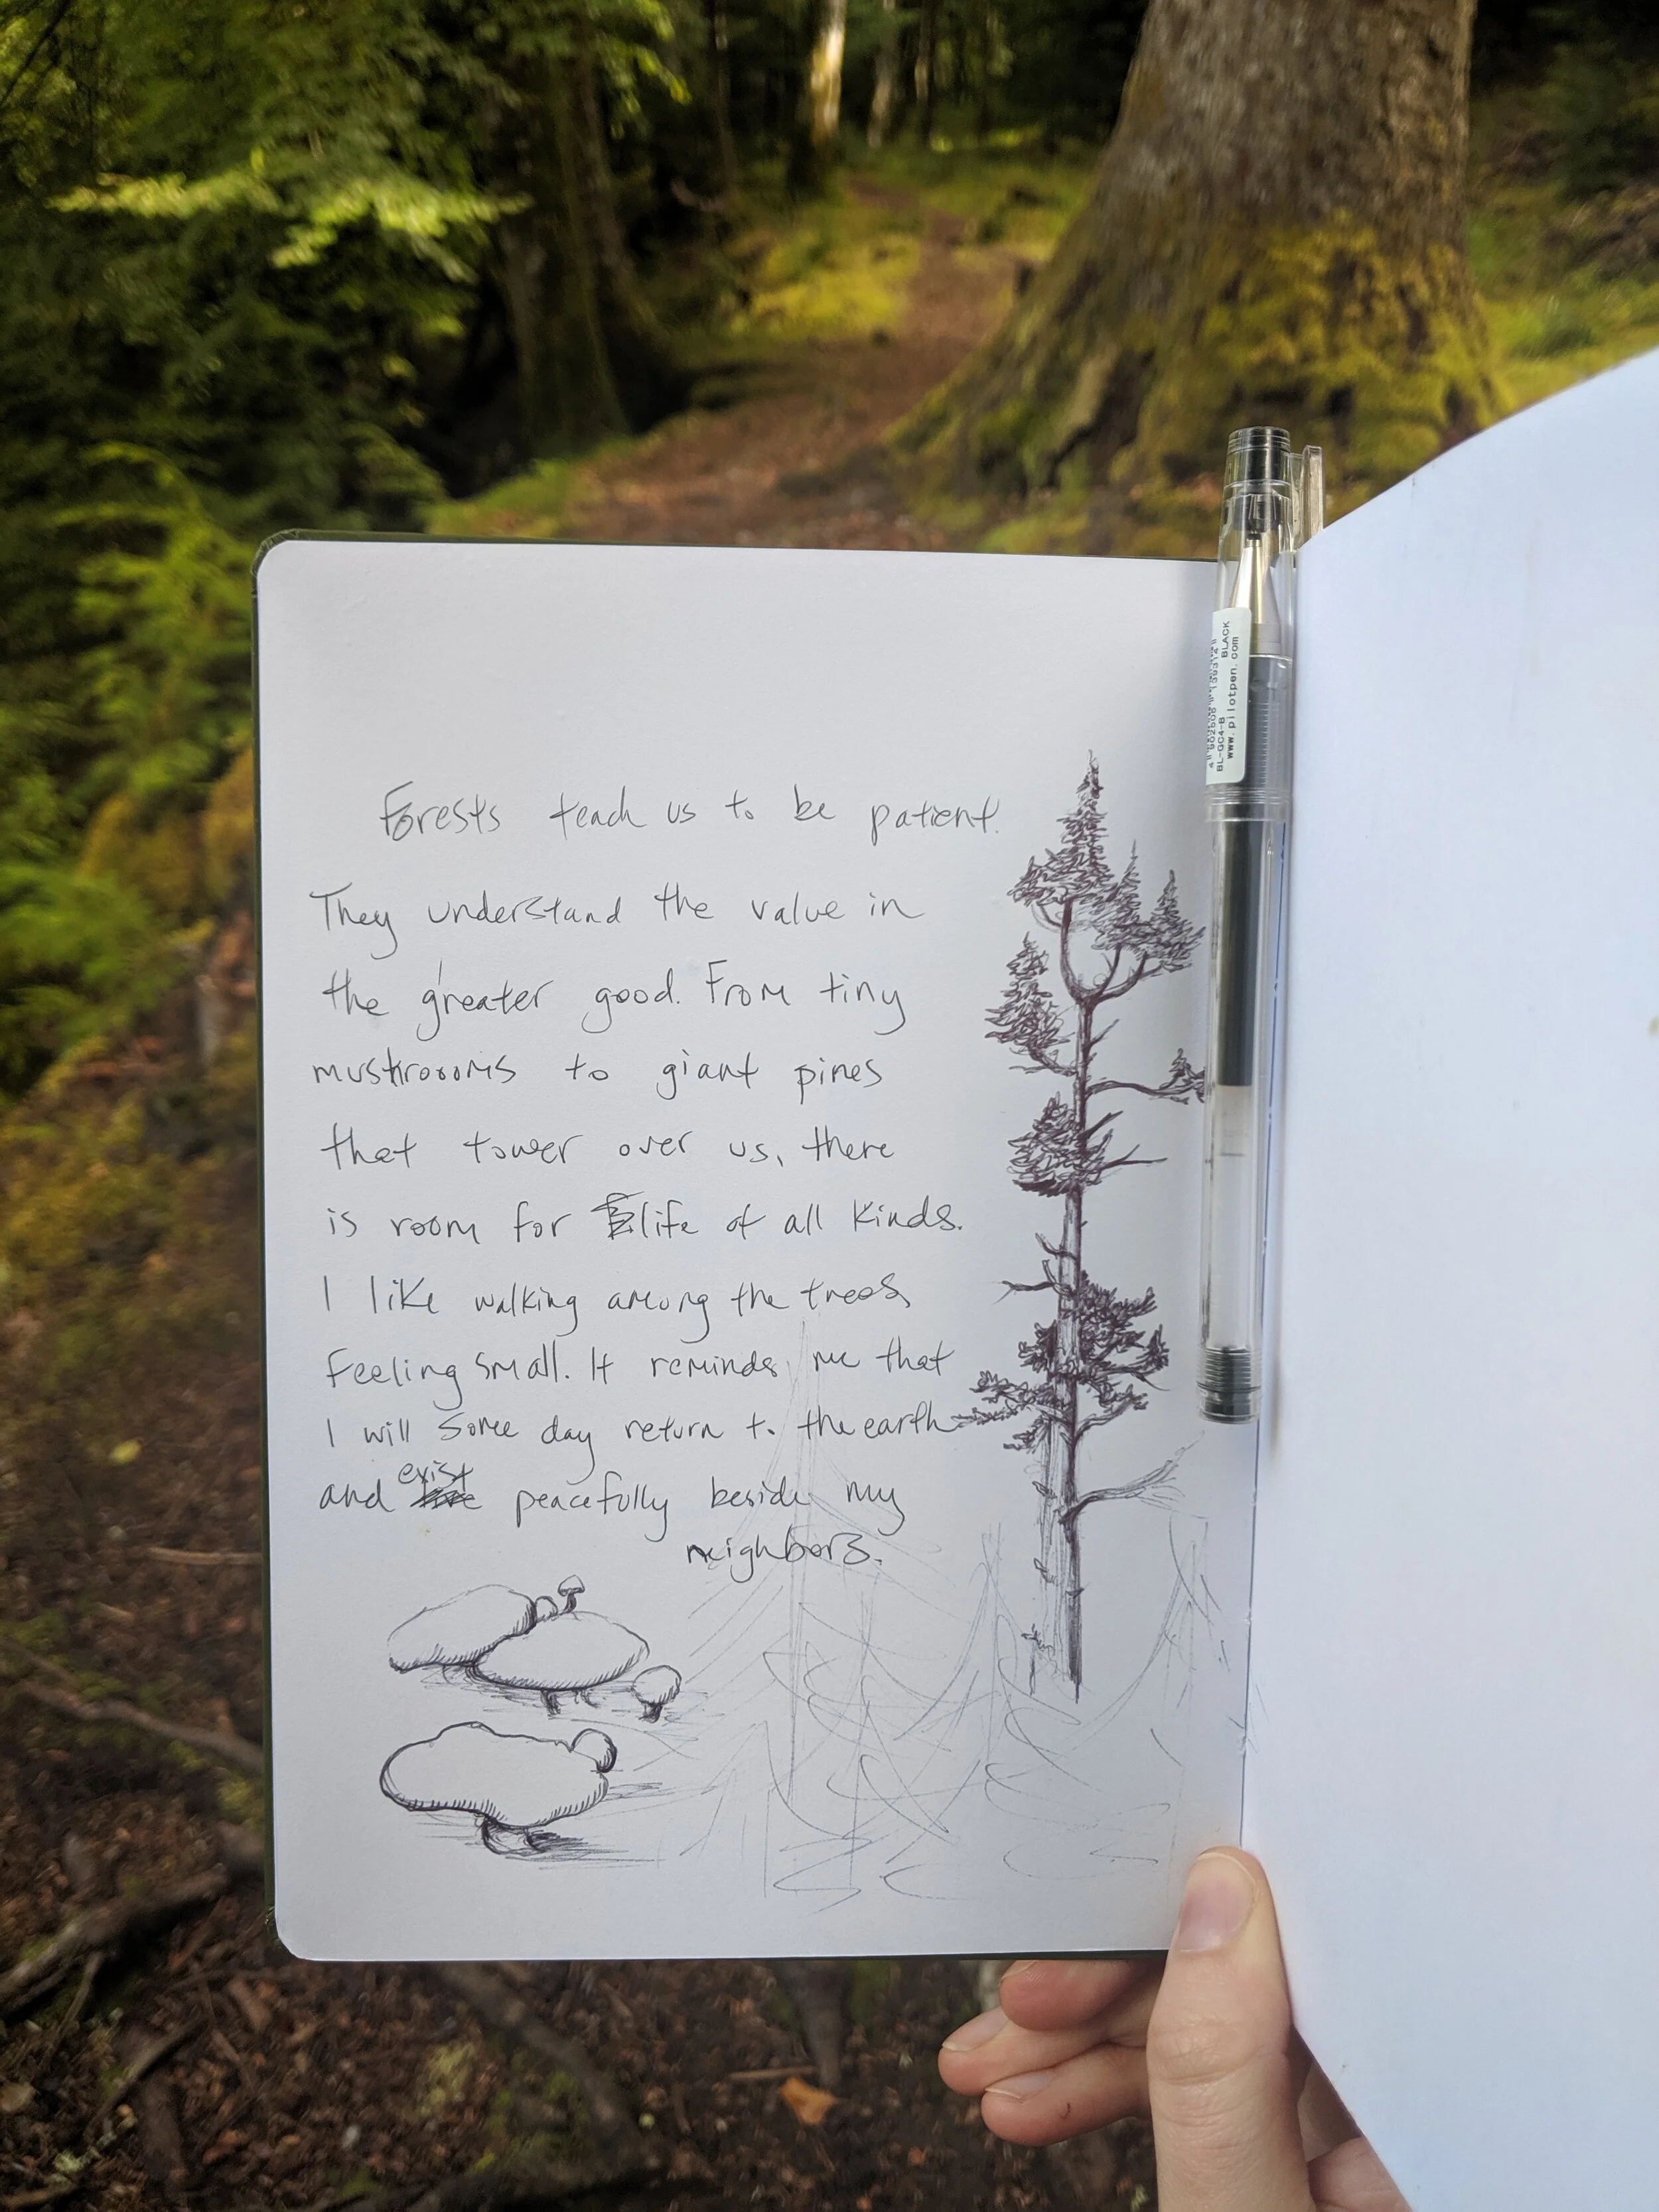 Forests teach us to be patient.
They understand the value in
the greater good. From tiny
mushrooms to giant pines
that tower over us, there
is room for life of all kinds.
I like walking among the trees,
feeling small. It reminds me that
I will some day return to the earth
and exist peacefully beside my
neighbors.
BLACK
BL-GC4-B
www.pilotpen.com